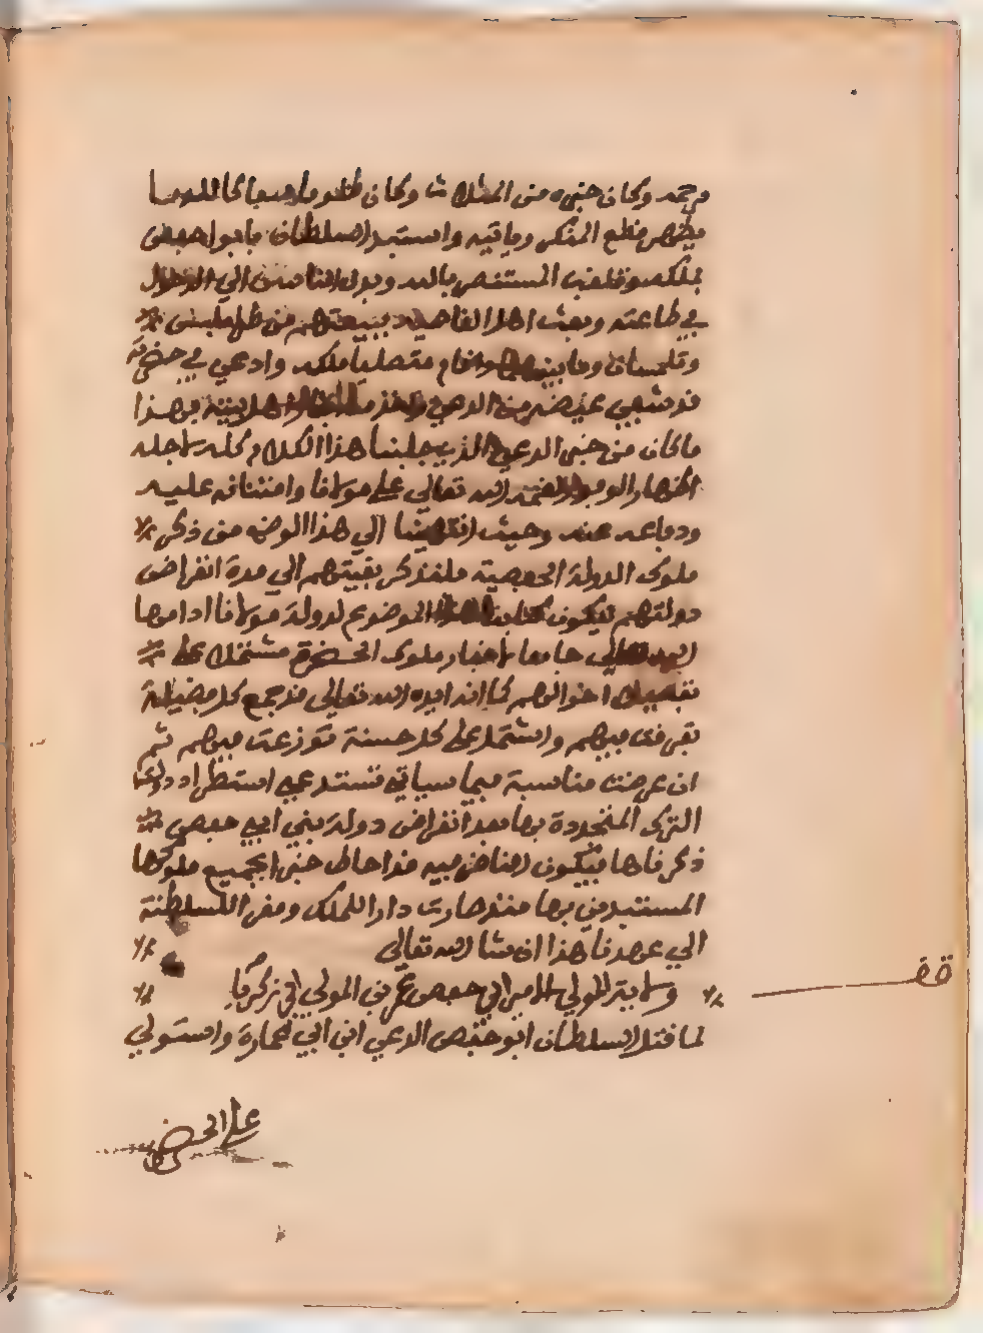 وكان خبره من المثلات وكان
فطع المنكر واستبد السلطان ابو حفص
بملكه وتلقب المستنصر بالله الناس الى الدخول
في طاعته وبعث اهل القاصية ببيعتهم من طرابلس
وتلمسان وما بينهما واقام ملكه وادعي في حضرته
الدعي بهذا
ما كان من خبر الدعي الذي جلبنا هذا الكلام كله لاجله
الله تعالي على مولانا وامتنانه عليه
ودفاعه عنه وحيث انتهينا الي هذا الوضع من ذكر
ملوك الدولة الحفصية فلنذكر بقيتهم الي مدة انقراض
دولتهم ليكون كتابنا هذا الموضوع لدولة مولانا ادامها
الله تعالي جامعا لاخبار ملوك الحضرة مشتملا على
تفصيل احوالهم كما انه ايده الله تعالى قد جمع كل فضيلة
تفرقت فيهم واشتمل على كل حسنة توزعت فيهم ثم
ان عرضت مناسبة فيما سياتي تستدعي استطراد دولة
الترك المتجددة بها بعد انقراض دولة بني ابي حفص
ذكرناها فيكون الناظر فيه قد احاط خبرا بجميع ملوكها
المستبدين بها منذ صارت دار الملك ومقر السلطنة
الي عهدنا هذا ان شا الله تعالى
ولاية المولي الامير ابي حفص عمر بن المولي ابي زكرياء
قف
لما قتل السلطان ابو حفص الدعي ابن ابي عمارة واستولي
على الحضرة